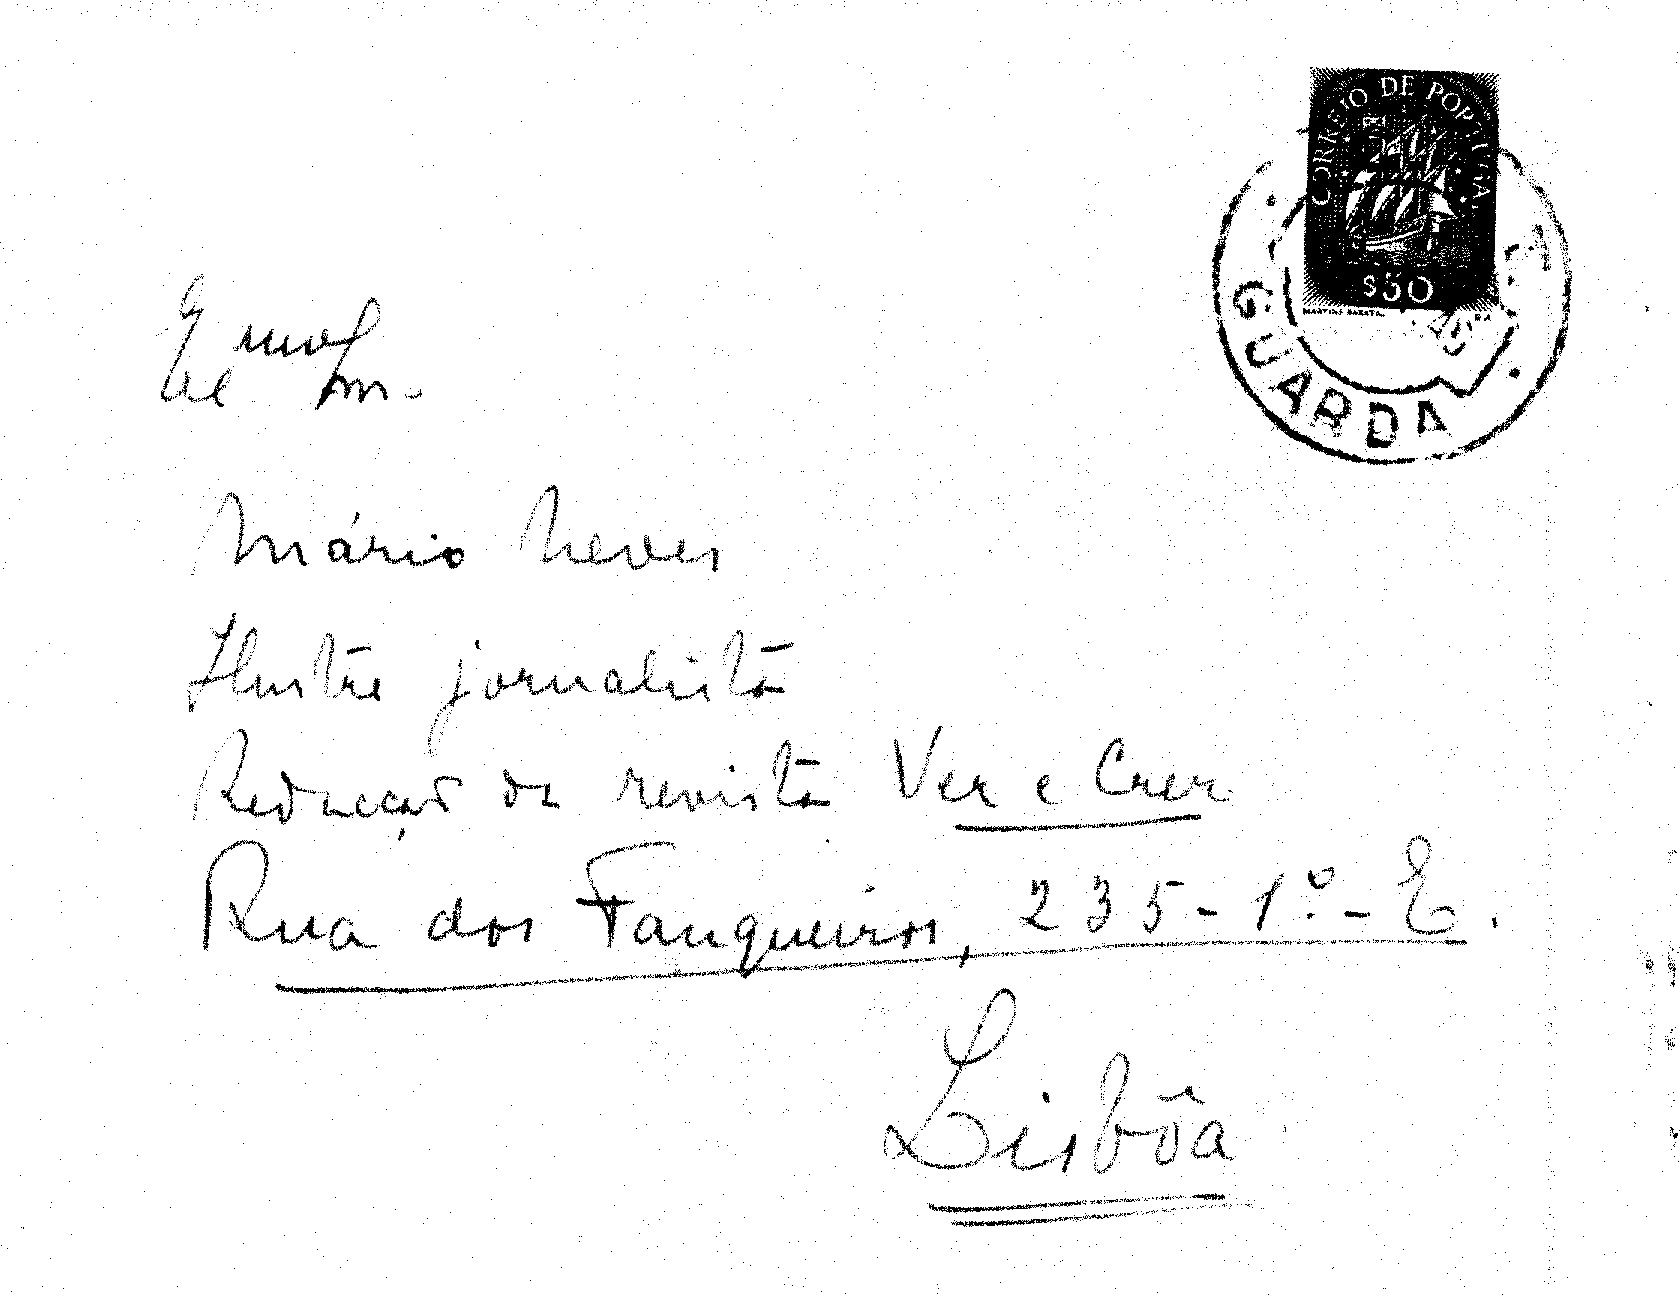 CORREIO DE PORTUGAL
$50
MARTINS BARATA
GUARDA
Exmo
Sr.
Mário Neves
Ilustre jornalista
Redacção da revista Ver e Crer
Rua dos Fanqueiros, 235-1º-E.
Lisbôa